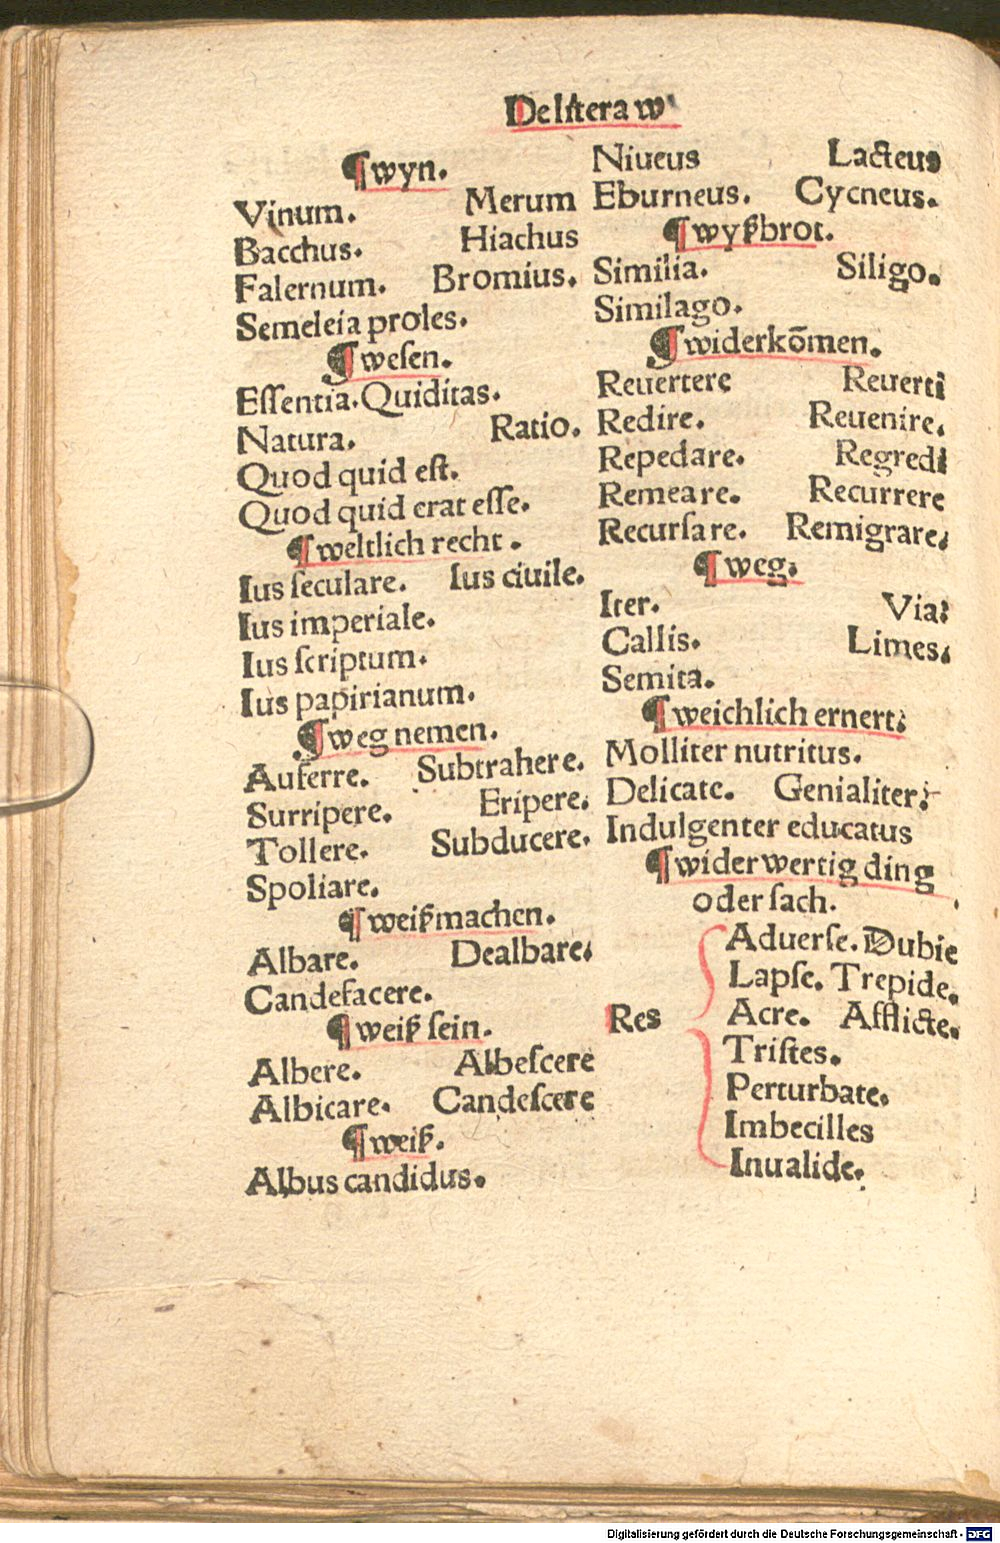 De lr̃tera w
¶wyn.
Vinum. Merum
Bacchus. Hiachus
Falernum. Bromius.
Semeleia proles.
¶weſen.
Eſſentia. Quiditas.
Natura. Ratio.
Quod quid eſt.
Quod quid erat eſſe.
¶weltlich recht.
Ius ſeculare. Ius ciuile.
Ius imperiale.
Ius ſcriptum.
Ius papirianum.
¶weg nemen.
Auferre. Subtrahere.
Surripere. Eripere.
Tollere. Subducere.
Spoliare.
¶weiß machen.
Albare. Dealbare.
Candefacere.
¶weiß ſein.
Albere. Albeſcere
Albicare. Candeſcere
¶weiß.
Albus candidus.
Niueus Lacteus
Eburneus. Cycneus.
¶wyßbrot.
Similia. Siligo.
Similago.
¶widerkōmen.
Reuertere Reuerti
Redire. Reuenire.
Repedare. Regredi
Remeare. Recurrere
Recurſare. Remigrare.
¶weg.
Iter. Via.
Callis. Limes.
Semita.
¶weichlich ernert.
Molliter nutritus.
Delicate. Genialiter.
Indulgenter educatus
¶wider wertig ding
oder ſach.
Res
Aduerſe. Dubie
Lapſe. Trepide.
Acre. Afflicte.
Triſtes.
Perturbate.
Imbecilles
Inualide.
Digitalisierung gefördert durch die Deutsche Forschungsgemeinschaft - DFG